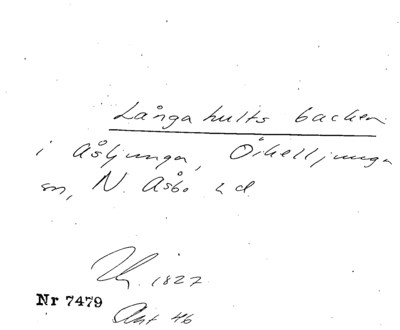 Långahults backen
i Åsljunga, Örkelljunga
sn, N. Åsbo hd
1827
Nr 7479
Ant 46